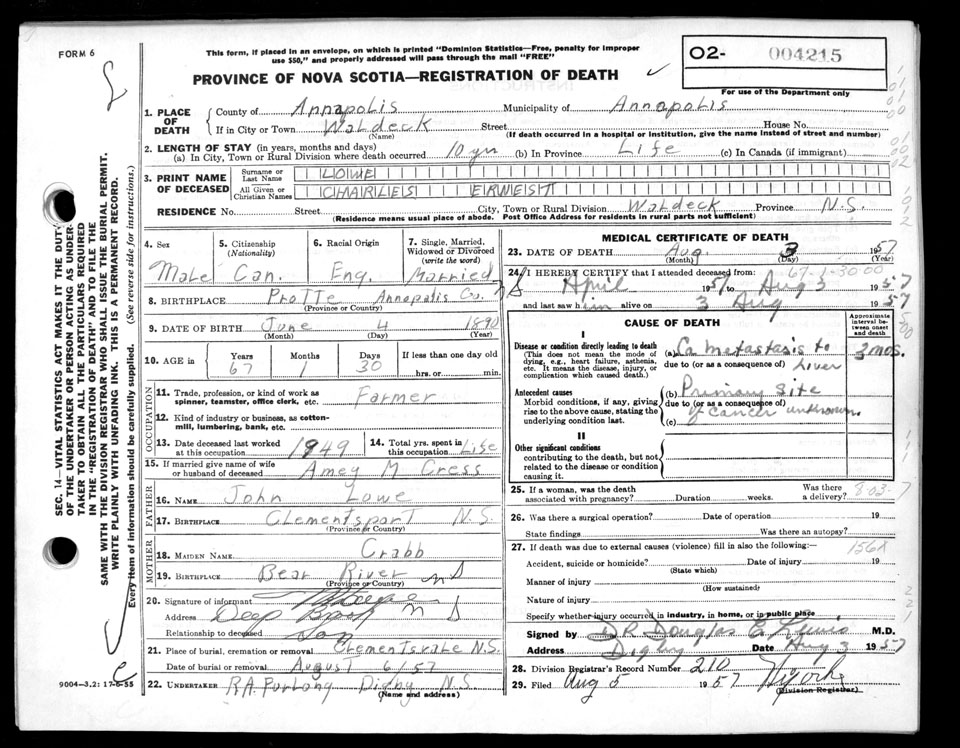 FORM 6
This form, if placed in an envelope, on which is printed "Dominion Statistics—Free, penalty for improper
use $50," and properly addressed will pass through the mail "FREE"
PROVINCE OF NOVA SCOTIA—REGISTRATION OF DEATH
O2- 004215
For use of the Department only
1. PLACE OF DEATH
County of Annapolis Municipality of Annapolis
If in City or Town Waldeck Street House No.
(Name) (If death occurred in a hospital or institution, give the name instead of street and number)
2. LENGTH OF STAY (in years, months and days)
(a) In City, Town or Rural Division where death occurred 10 yrs (b) In Province Life (c) In Canada (if immigrant)
3. PRINT NAME OF DECEASED
Surname or Last Name LOWE
All Given or Christian Names CHARLES ERWEST
RESIDENCE No. Street City, Town or Rural Division Waldeck Province N.S.
(Residence means usual place of abode. Post Office Address for residents in rural parts not sufficient)
4. Sex Male
5. Citizenship (Nationality) Can.
6. Racial Origin Eng.
7. Single, Married, Widowed or Divorced (write the word) Married
8. BIRTHPLACE Annapolis Co. NS
(Province or Country)
9. DATE OF BIRTH June 4 1890
(Month) (Day) (Year)
10. AGE in Years 67 Months 1 Days 30 If less than one day old
hrs. or min.
OCCUPATION
11. Trade, profession, or kind of work as
spinner, teamster, office clerk, etc. Farmer
12. Kind of industry or business, as cotton-
mill, lumbering, bank, etc.
13. Date deceased last worked
at this occupation 1949
14. Total yrs. spent in
this occupation Life
15. If married give name of wife
or husband of deceased Amey M Cress
FATHER
16. NAME John Lowe
17. BIRTHPLACE Clementsport N.S.
(Province or Country)
MOTHER
18. MAIDEN NAME Crabb
19. BIRTHPLACE Bear River NS
(Province or Country)
20. Signature of informant
Address Deep Brook NS
Relationship to deceased Son
21. Place of burial, cremation or removal Clementsvale N.S.
Date of burial or removal August 6/57
22. UNDERTAKER R.A. Digby N.S.
(Name and address)
MEDICAL CERTIFICATE OF DEATH
23. DATE OF DEATH Aug. 3 1957
(Month) (Day) (Year)
67-1-30 00
24. I HEREBY CERTIFY that I attended deceased from
April 1957 to Aug 3 1957
and last saw him alive on 3 Aug 1957
CAUSE OF DEATH
Approximate interval between onset and death
I
Disease or condition directly leading to death
(This does not mean the mode of dying, e.g., heart failure, asthenia, etc. It means the disease, injury, or complication which caused death.)
(a) Ca metastasis to liver 3 mos.
due to (or as a consequence of)
Antecedent causes
Morbid conditions, if any, giving rise to the above cause, stating the underlying condition last.
(b) Primary site of cancer unknown.
due to (or as a consequence of)
(c)
II
Other significant conditions
contributing to the death, but not related to the disease or condition causing it.
25. If a woman, was the death
associated with pregnancy? Duration weeks. Was there a delivery?
26. Was there a surgical operation? Date of operation 19
State findings Was there an autopsy?
27. If death was due to external causes (violence) fill in also the following:—
Accident, suicide or homicide? Date of injury 19
(State which)
Manner of injury
(How sustained)
Nature of injury
Specify whether injury occurred in industry, in home, or in public place
Signed by DR Douglas E. Lewis M.D.
Address Digby Date Aug 3 1957
28. Division Registrar's Record Number 210
29. Filed Aug 5 1957
(Division Registrar)
SEC. 14—VITAL STATISTICS ACT MAKES IT THE DUTY
OF THE UNDERTAKER OR PERSON ACTING AS UNDER-
TAKER TO OBTAIN ALL THE PARTICULARS REQUIRED
IN THE "REGISTRATION OF DEATH" AND TO FILE THE
SAME WITH THE DIVISION REGISTRAR WHO SHALL ISSUE THE BURIAL PERMIT.
WRITE PLAINLY WITH UNFADING INK. THIS IS A PERMANENT RECORD.
Every item of information should be carefully supplied. (See reverse side for instructions.)
9004-3.2: 17-6-55